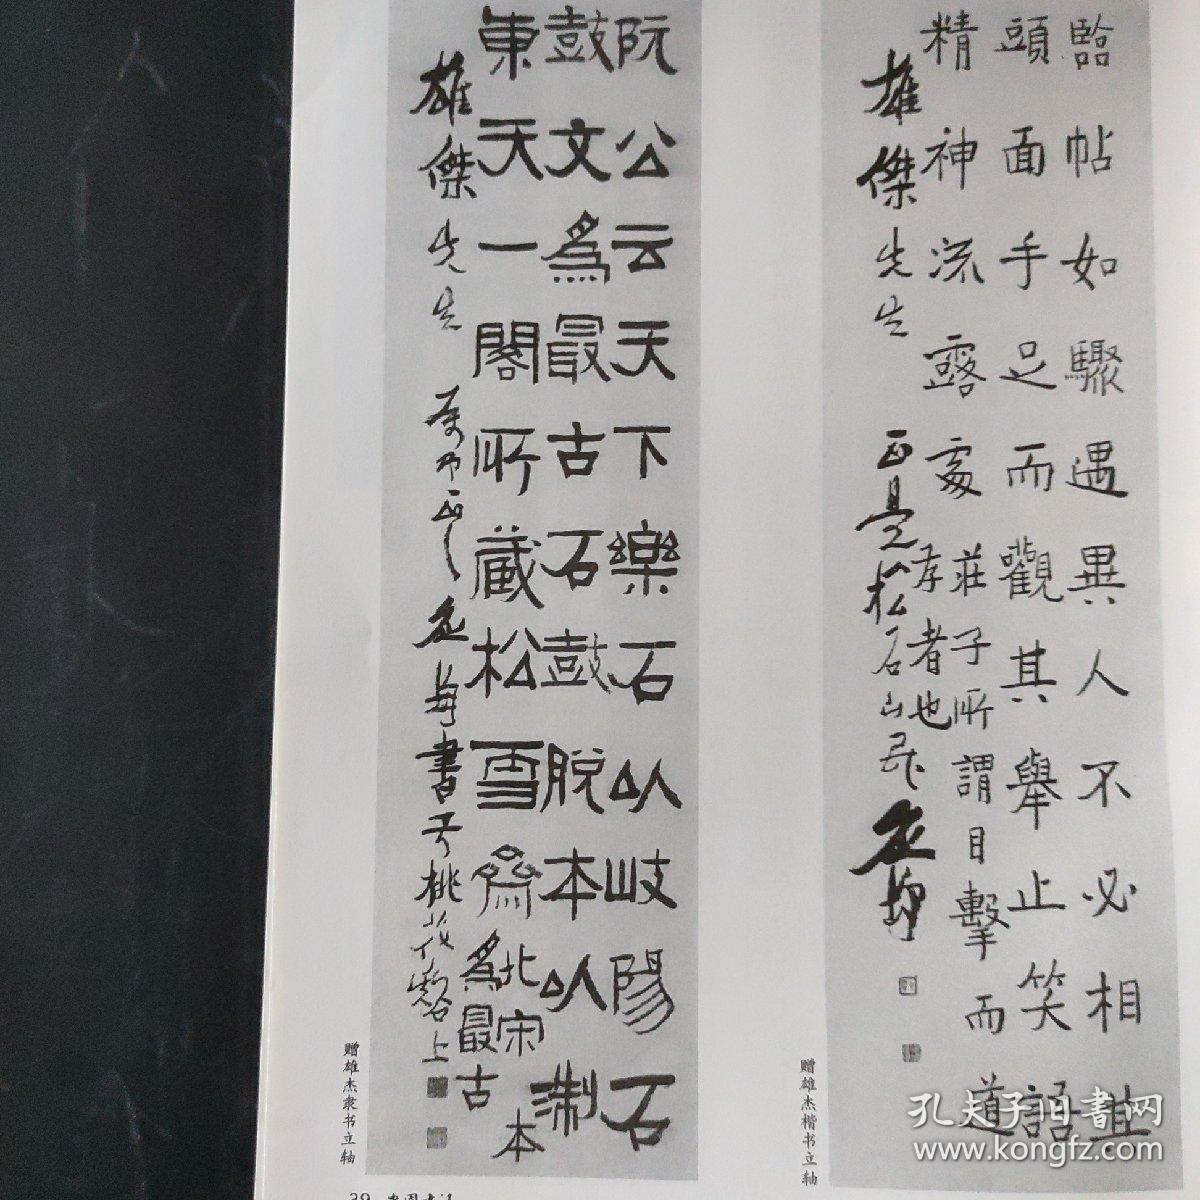 臨帖如驟遇異人不必相
頭面手足而觀其舉止笑語
精神流露處莊子所謂目擊而道
存者也
雄傑先生 正是 松石山民
赠雄杰楷书立轴
阮公云天下樂石以岐陽石
鼓文爲最古石鼓脫本以浙
東天一閣所藏松雪齋北宋本
爲最古
雄傑先生 書于桃花 上
赠雄杰隶书立轴
39
孔夫子旧書网
www.kongfz.com